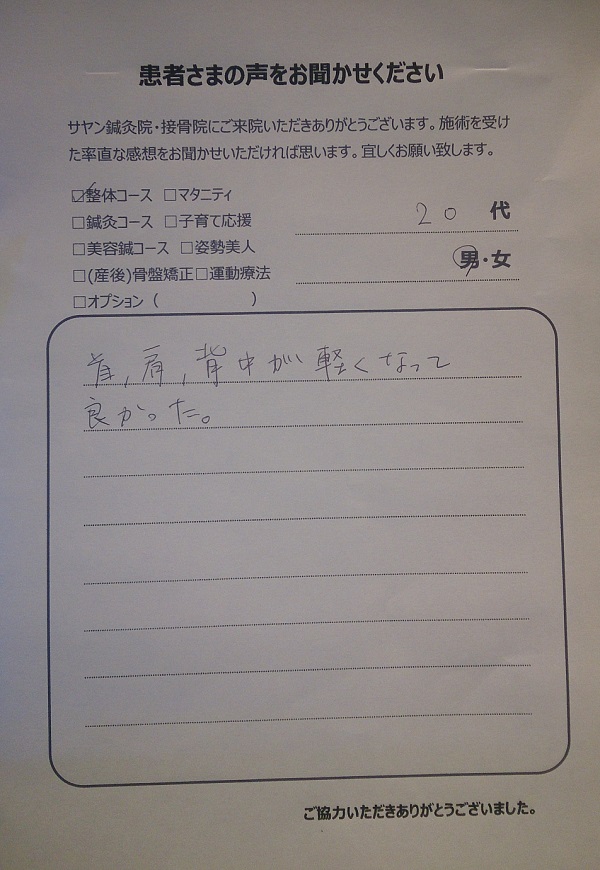 患者さまの声をお聞かせください
サヤン鍼灸院・接骨院にご来院いただきありがとうございます。施術を受け
た率直な感想をお聞かせいただければ思います。宜しくお願い致します。
☑整体コース □マタニティ
□鍼灸コース □子育て応援
20 代
□美容鍼コース □姿勢美人
男・女
□(産後)骨盤矯正□運動療法
□オプション ( )
首,肩,背中が軽くなって
良かった。
ご協力いただきありがとうございました。